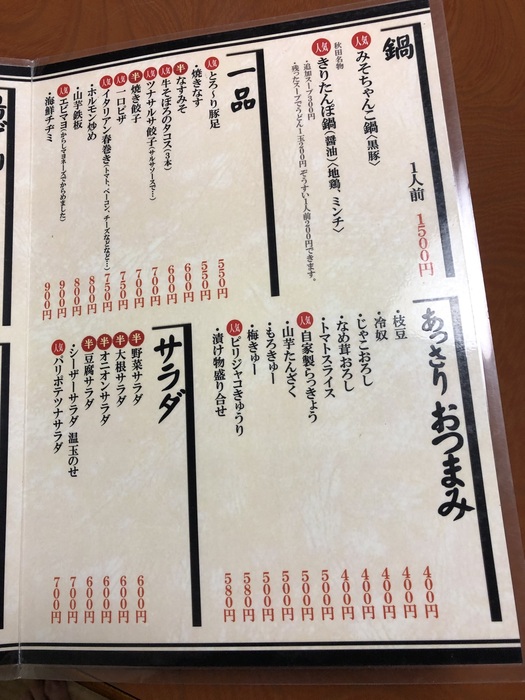 鍋 1人前 1500円
人気 みそちゃんこ鍋〈黒豚〉
秋田名物
人気 きりたんぽ鍋(醤油)〈地鶏、ミンチ〉
・追加スープ300円
・残ったスープでうどん1玉200円 ぞうすい1人前200円できます。
一品
人気 とろ〜り豚足 550円
・焼きなす 550円
半 なすみそ 600円
人気 牛そぼろのタコス(3本) 600円
人気 ツナサルサ餃子(サルサソースで!) 700円
半 焼き餃子 700円
人気 一口ピザ 750円
人気 イタリアン春巻き(トマト、ベーコン、チーズなどなど…) 750円
・ホルモン炒め 800円
・山芋鉄板 800円
人気 エビマヨ(からしマヨネーズでからめました) 900円
・海鮮チヂミ 900円
あっさりおつまみ
・枝豆 400円
・冷奴 400円
・じゃこおろし 400円
・なめ茸おろし 400円
・トマトスライス 400円
人気 自家製らっきょう 500円
・山芋たんざく 500円
・もろきゅー 500円
・梅きゅー 500円
人気 ピリジャコきゅうり 580円
・漬け物盛り合せ 580円
サラダ
半 野菜サラダ 600円
半 大根サラダ 600円
半 オニオンサラダ 600円
半 豆腐サラダ 600円
・シーザーサラダ 温玉のせ 700円
人気 パリポテツナサラダ 700円